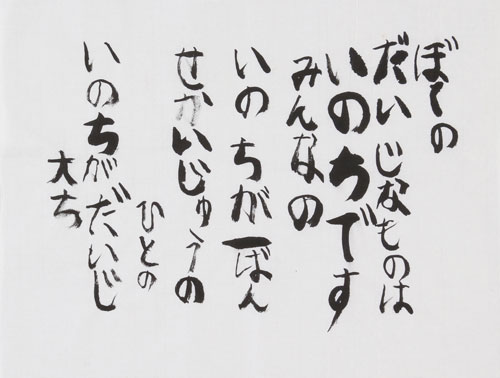 ぼくの
だいじなものは
いのちです
みんなの
いのちが一ばん
せかいじゅうの
ひとの
いのちがだいじ
大ち